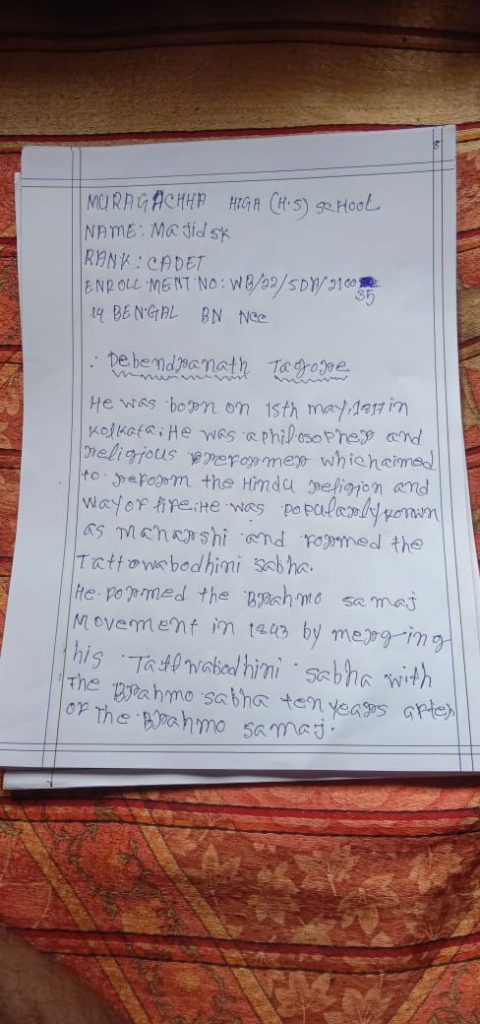 MURAGACHHA HIGH (H.S) SCHOOL
NAME: Majid sk
RANK: CADET
ENROLL MENT NO: WB/22/SDA/2100
35
14 BENGAL BN NCC
Debendranath Tagore
He was born on 15th may, 1817 in
Kolkata. He was a philosopher and
religious rerormer which aimed
to reform the Hindu religion and
way of life. He was popularly known
as Maharshi and formed the
Tattowabodhini sabha.
He formed the Brahmo samaj
Movement in 1843 by merging
his Tattwabodhini sabha with
The Brahmo sabha ten years after
of The Brahmo samaj.